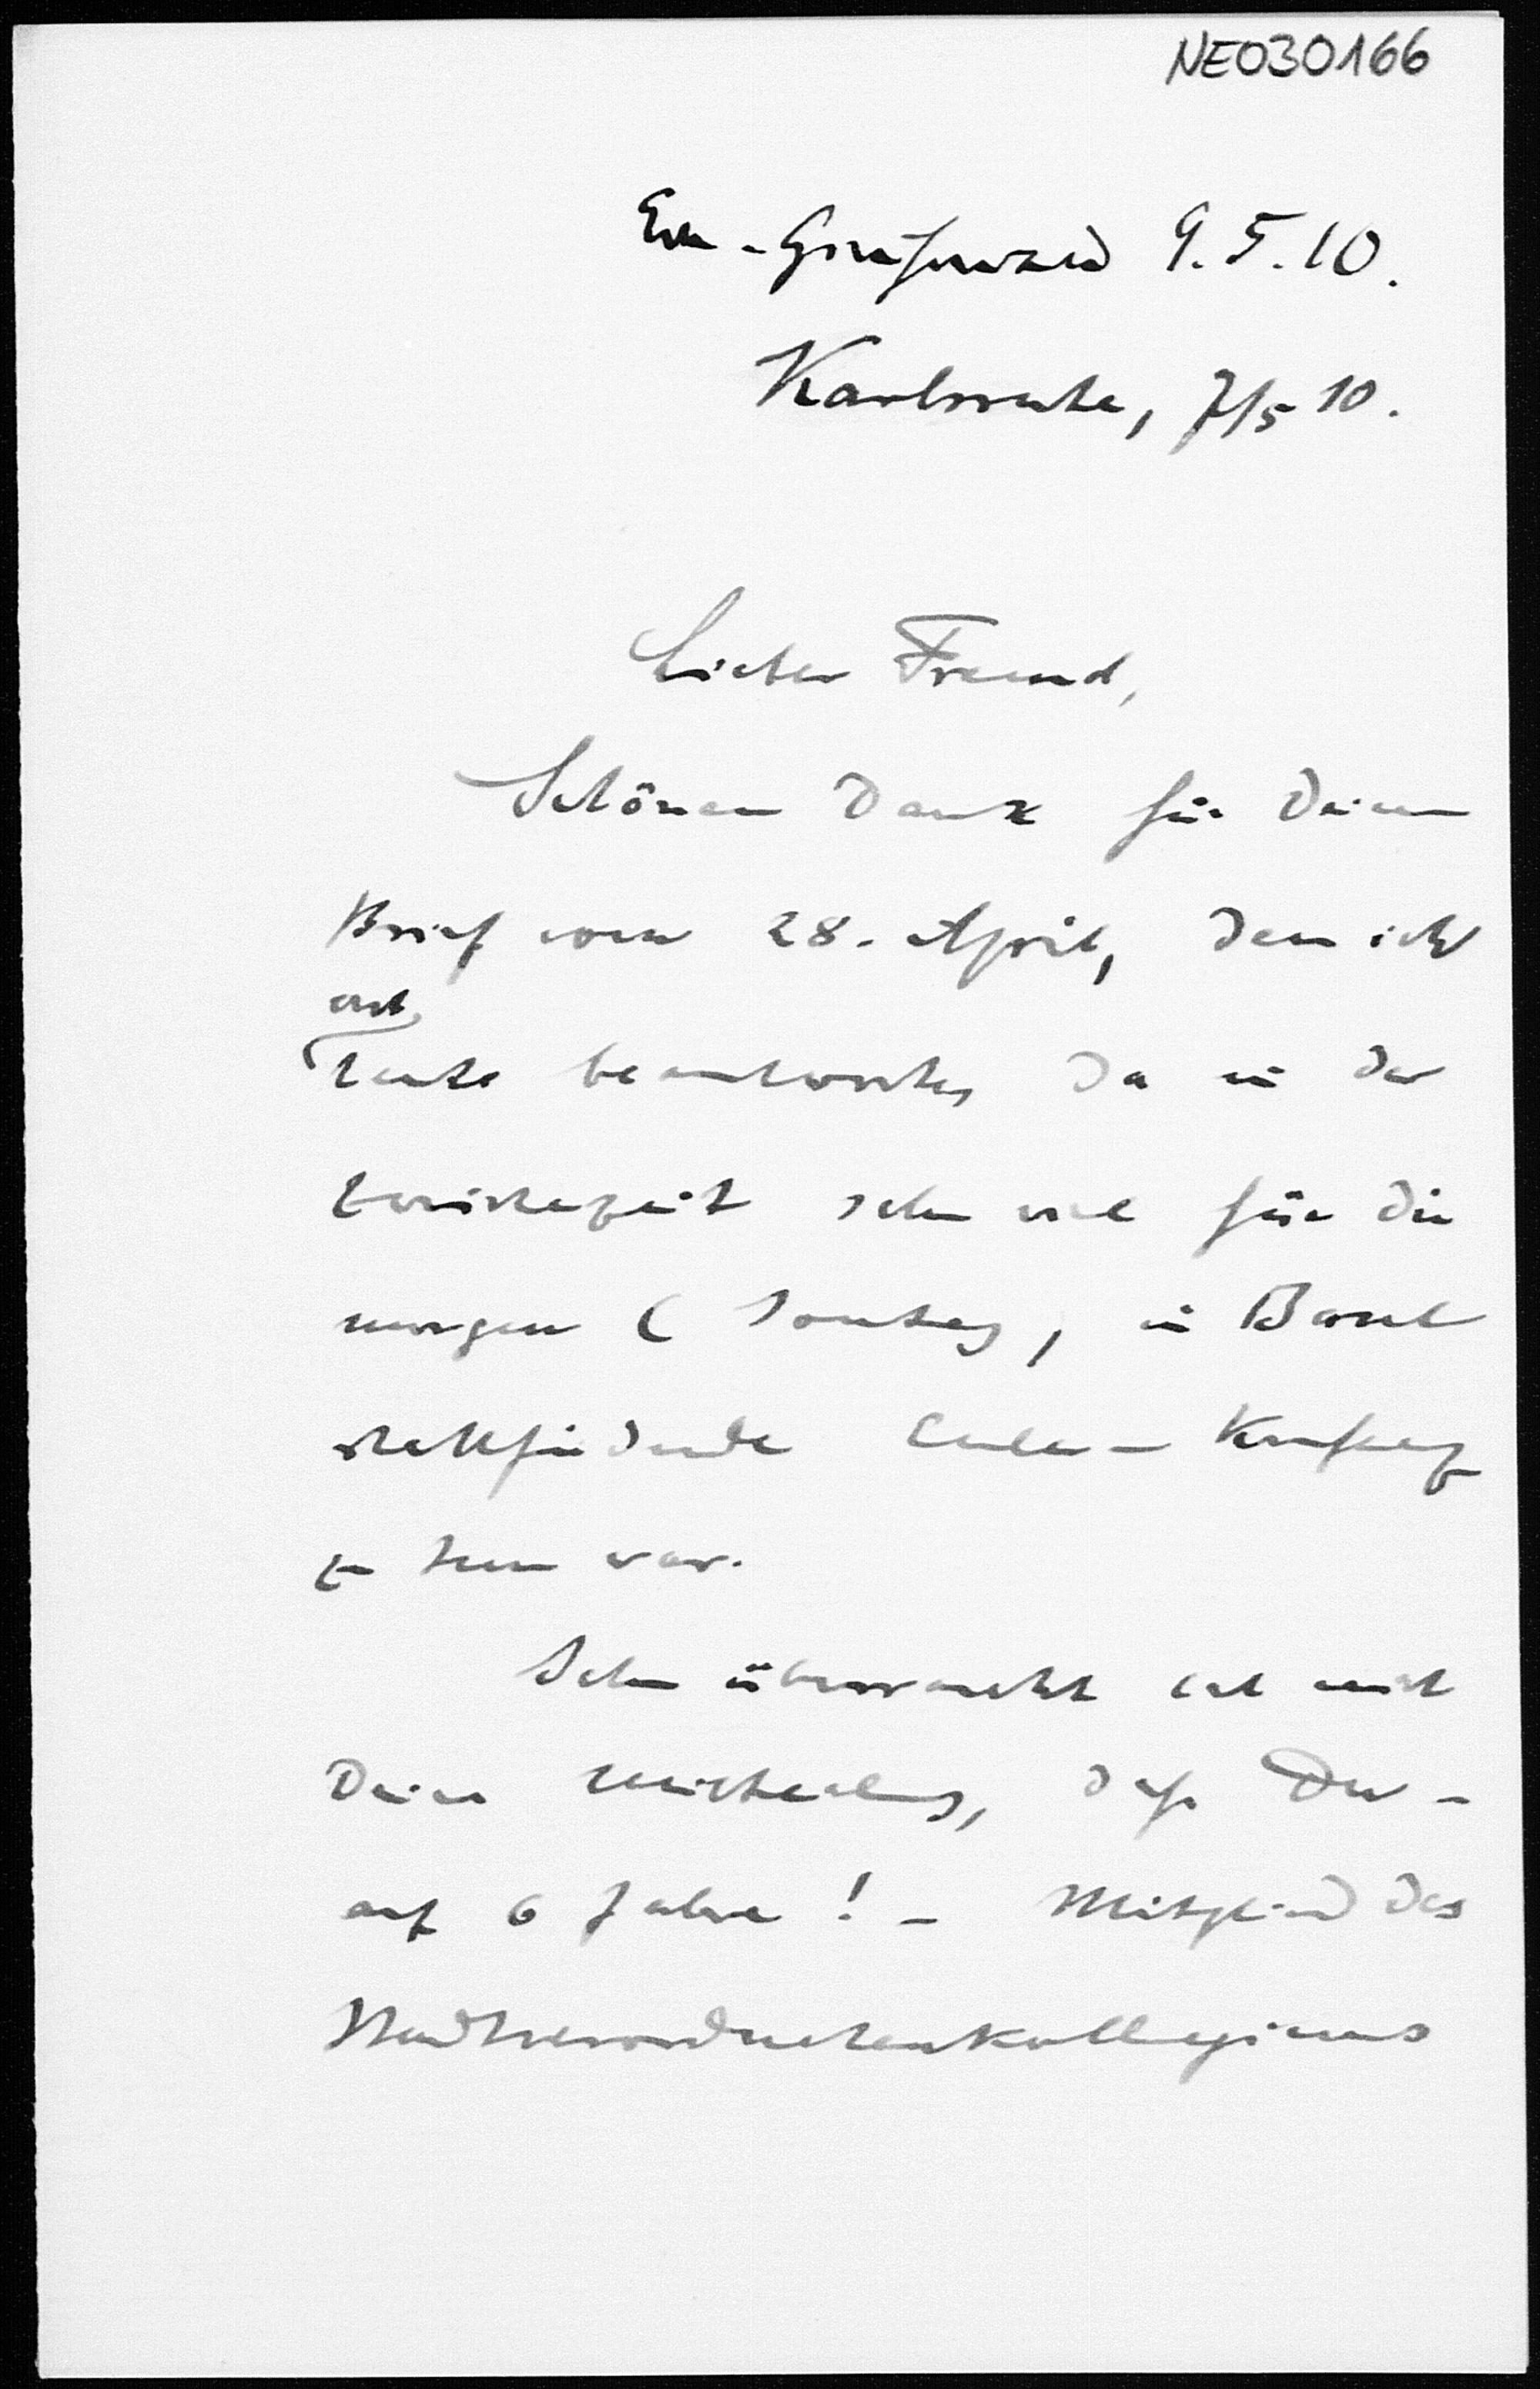 NE030166
Em-Greifswald 9.5.10.
Karlsruhe, 7/5 10.
Lieber Freund,
Schönen Dank für Deinen
Brief vom 28. April, den ich
erst
heute beantworte, da in der
Zwischenzeit sehr viel für die
morgen (Sonntag) in Basel
stattfindende Euler-Konferenz
zu tun war.
Sehr überrascht hat mich
Deine Mitteilung, daß Du -
auf 6 Jahre! - Mitglied des
Stadtverordnetenkollegiums